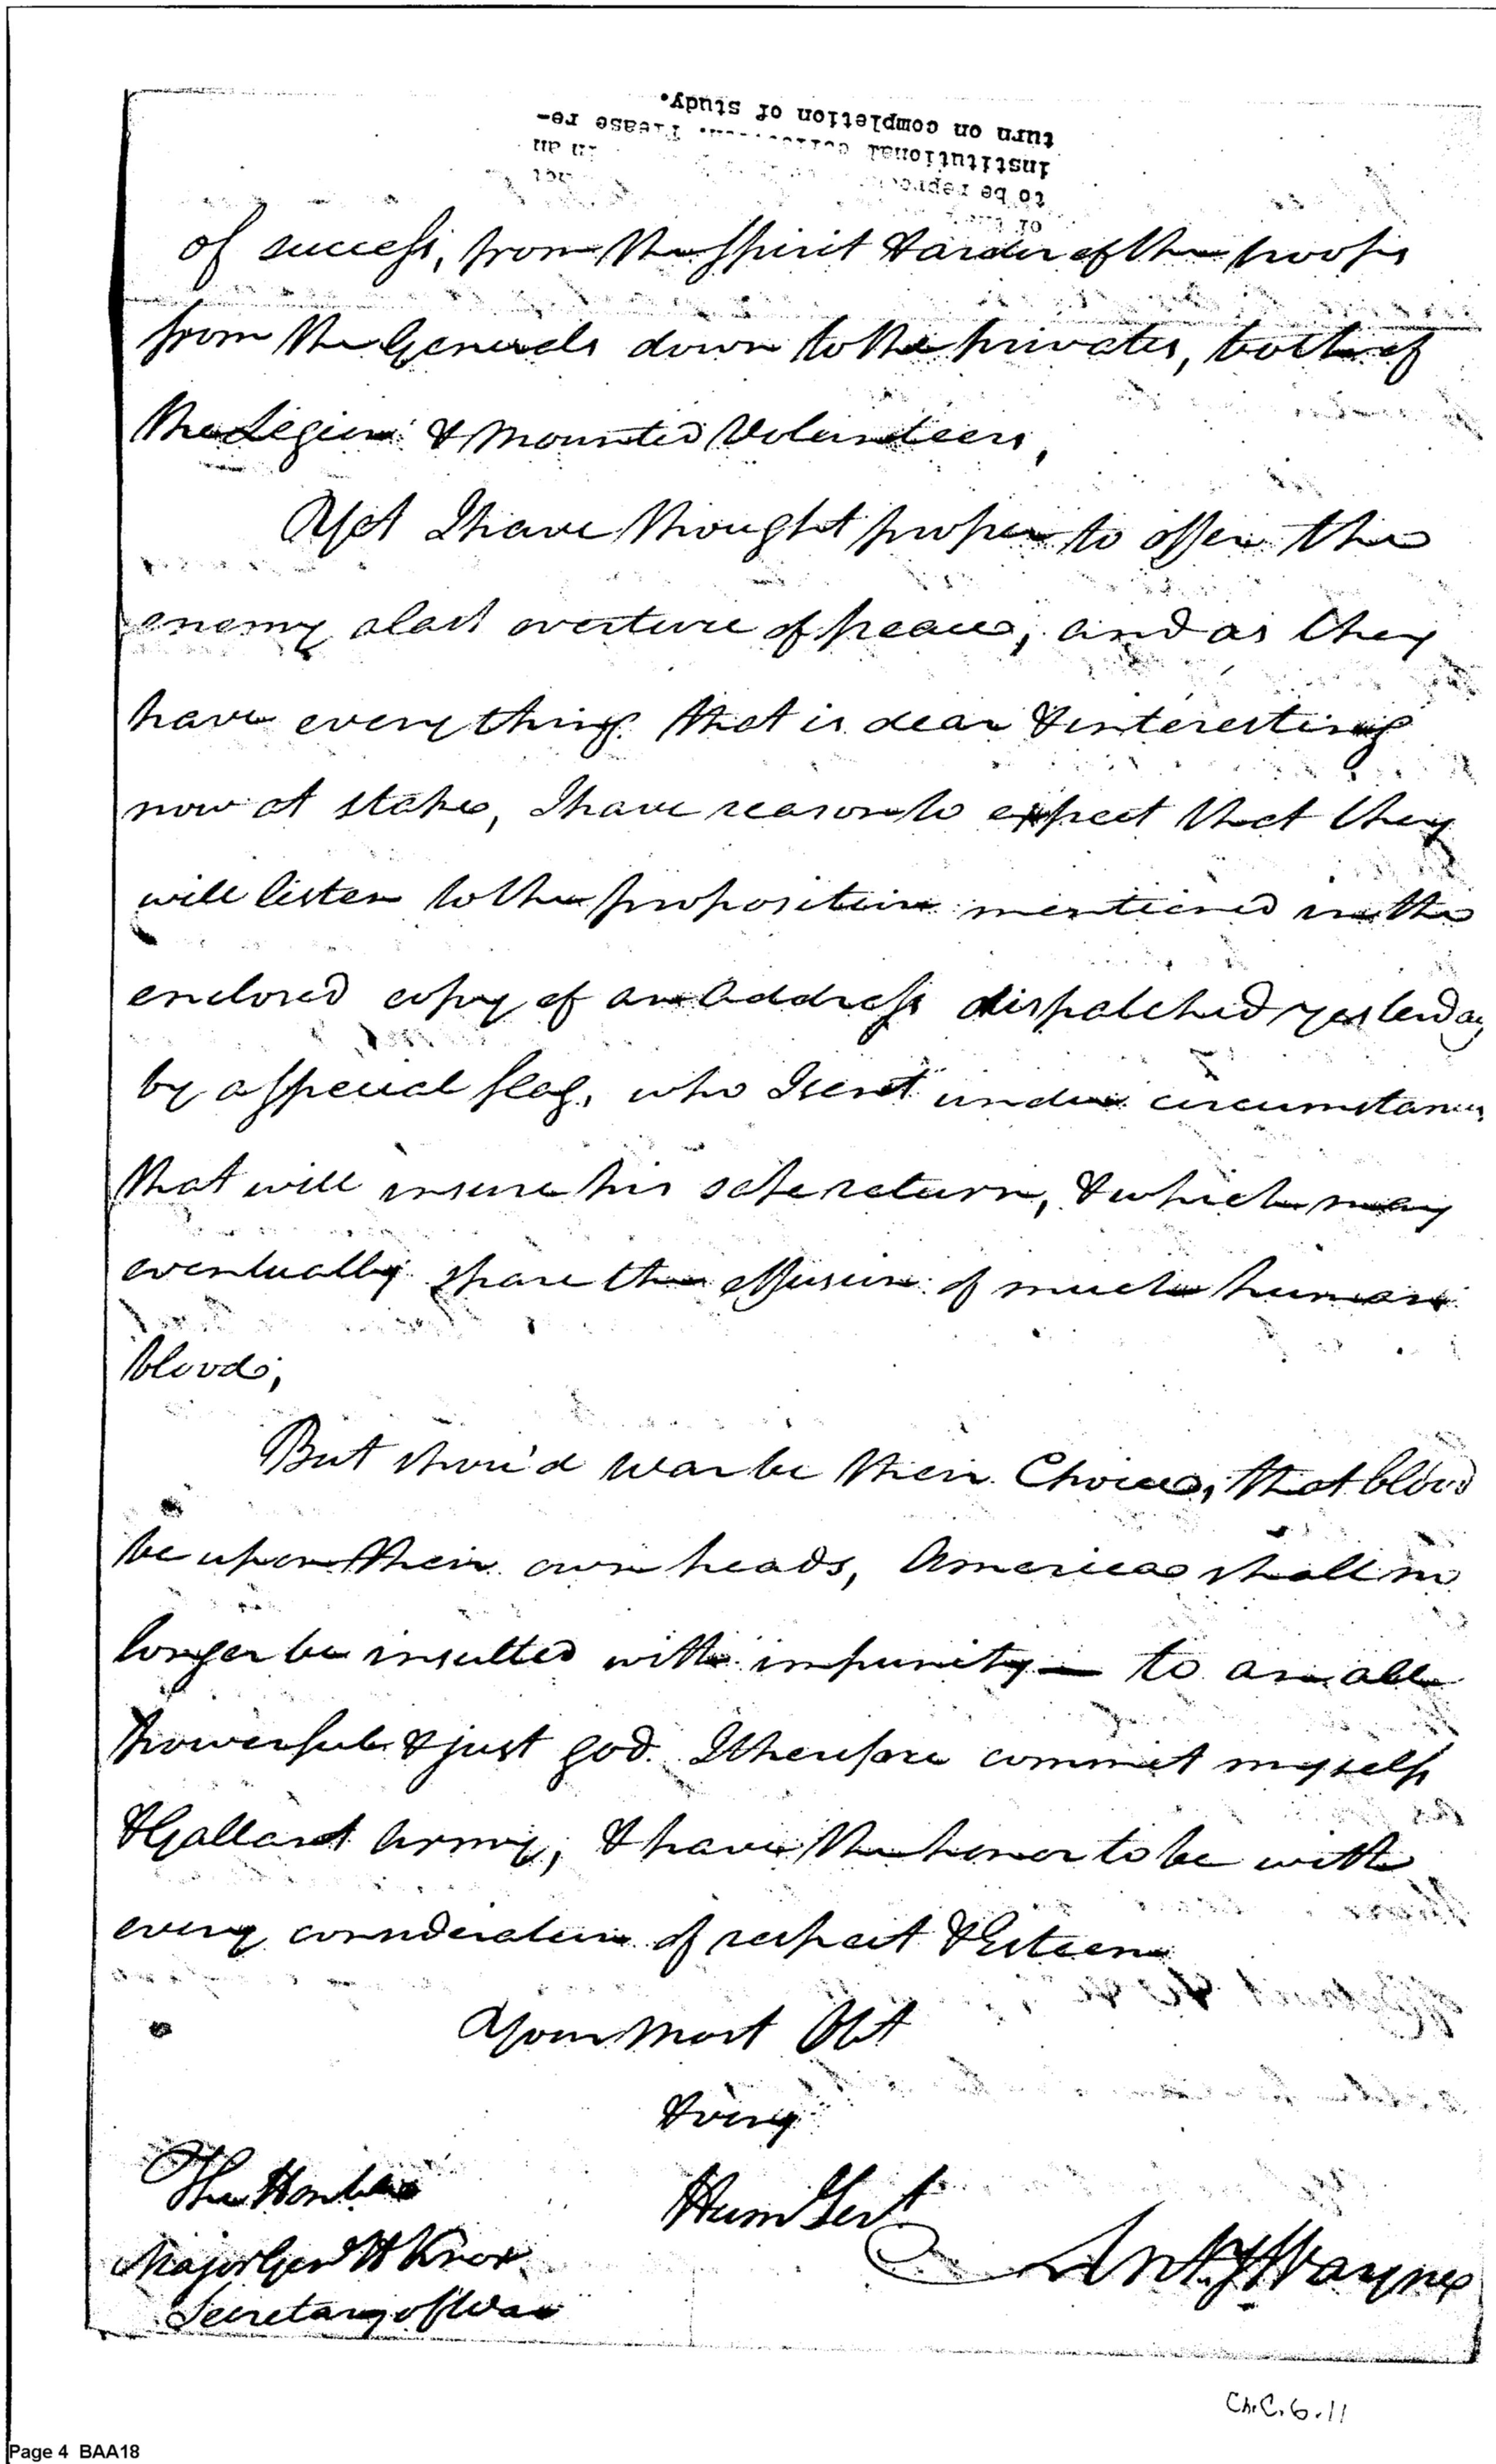 of the
to be repro not
institutional in an
Please re-
turn on completion of study.
of success, from the spirit & ardor of the troops
from the Generals down to the privates, both of
the Legion & mounted Volunteers,
Yet I have thought proper to offer the
enemy a last overture of peace; and as they
have every thing that is dear & interesting
now at stake, I have reason to expect that they
will listen to the proposition mentioned in the
enclosed copy of an address dispatched yesterday
by a special flag, who I sent under circumstances
that will insure his safe return, & which may
eventually spare the effusion of much human
blood;
But shou'd war be their Choice, that blood
be upon their own heads, America shall no
longer be insulted with impunity — to an all
powerful & just god I therefore commit myself
& Gallant army; & have the honor to be with
every consideration of respect & Esteem
Your most Obt
& very
Hum Sert
Anty Wayne
The Honble
Major Genl H Knox
Secretary of War
Ch.C.6.11
Page 4 BAA18